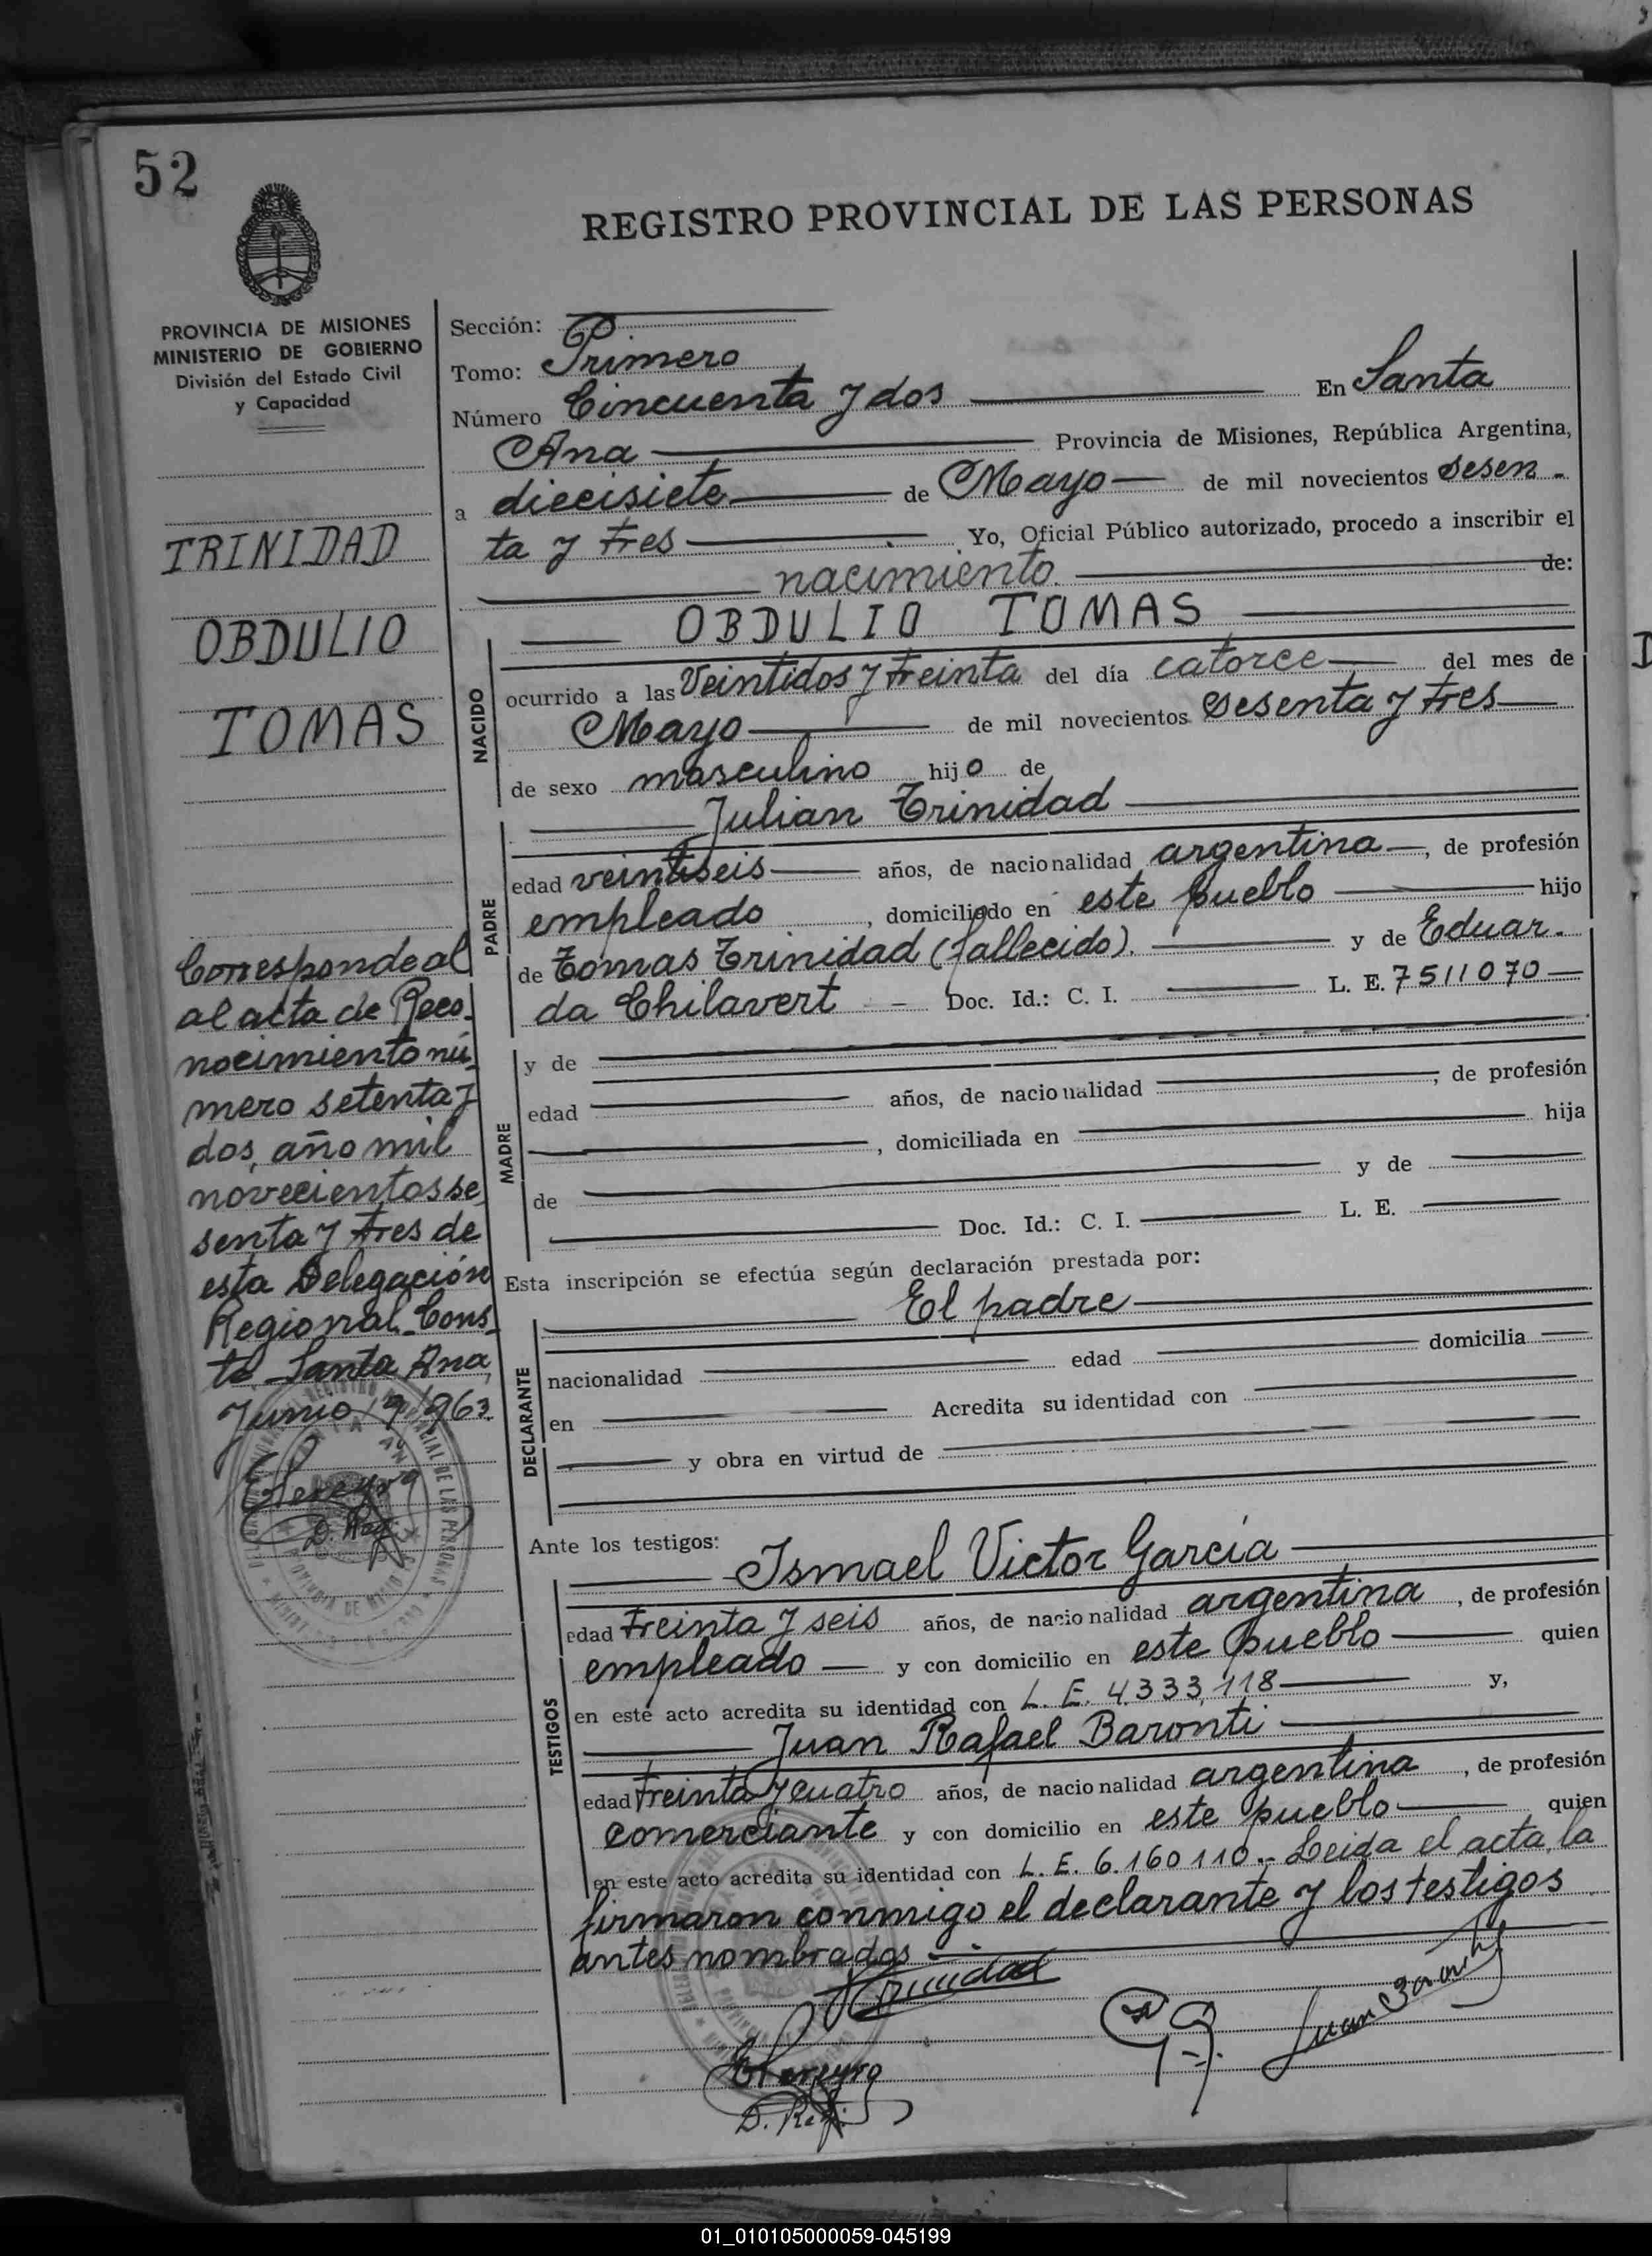 52
REGISTRO PROVINCIAL DE LAS PERSONAS
PROVINCIA DE MISIONES
MINISTERIO DE GOBIERNO
División del Estado Civil
y Capacidad
TRINIDAD
OBDULIO
TOMAS
Corresponde al
al acta de Reco-
nocimiento nú-
mero setenta y
dos, año mil
novecientos se
senta y tres de
esta Delegación
Regional. Cons-
te. Santa Ana,
Junio/9/963.
Pereyra
D. Reg.
Sección:
Tomo: Primero
Número Cincuenta y dos En Santa
Ana Provincia de Misiones, República Argentina,
a diecisiete de Mayo de mil novecientos sesen-
ta y tres Yo, Oficial Público autorizado, procedo a inscribir el
nacimiento de:
OBDULIO TOMAS
NACIDO
ocurrido a las Veintidos y treinta del día catorce del mes de
Mayo de mil novecientos sesenta y tres
de sexo masculino hijo de
Julian Trinidad
PADRE
edad veintiseis años, de nacionalidad argentina, de profesión
empleado, domiciliado en este pueblo hijo
de Tomas Trinidad (fallecido). y de Eduar-
da Chilavert Doc. Id.: C. I. L. E. 7511070
MADRE
y de
edad años, de nacionalidad, de profesión
, domiciliada en hija
de y de
Doc. Id.: C. I. L. E.
Esta inscripción se efectúa según declaración prestada por:
El padre
DECLARANTE
nacionalidad edad domicilia
en Acredita su identidad con
y obra en virtud de
Ante los testigos:
Ismael Victor García
TESTIGOS
edad treinta y seis años, de nacionalidad argentina, de profesión
empleado y con domicilio en este pueblo quien
en este acto acredita su identidad con L. E. 4.333,118 y,
Juan Rafael Baronti
edad treinta y cuatro años, de nacionalidad argentina, de profesión
comerciante y con domicilio en este pueblo quien
en este acto acredita su identidad con L. E. 6.160110.- Leida el acta, la
firmaron conmigo el declarante y los testigos
antes nombrados
Trinidad
Juan Baronti
Pereyra
D. Reg.
01_010105000059-045199